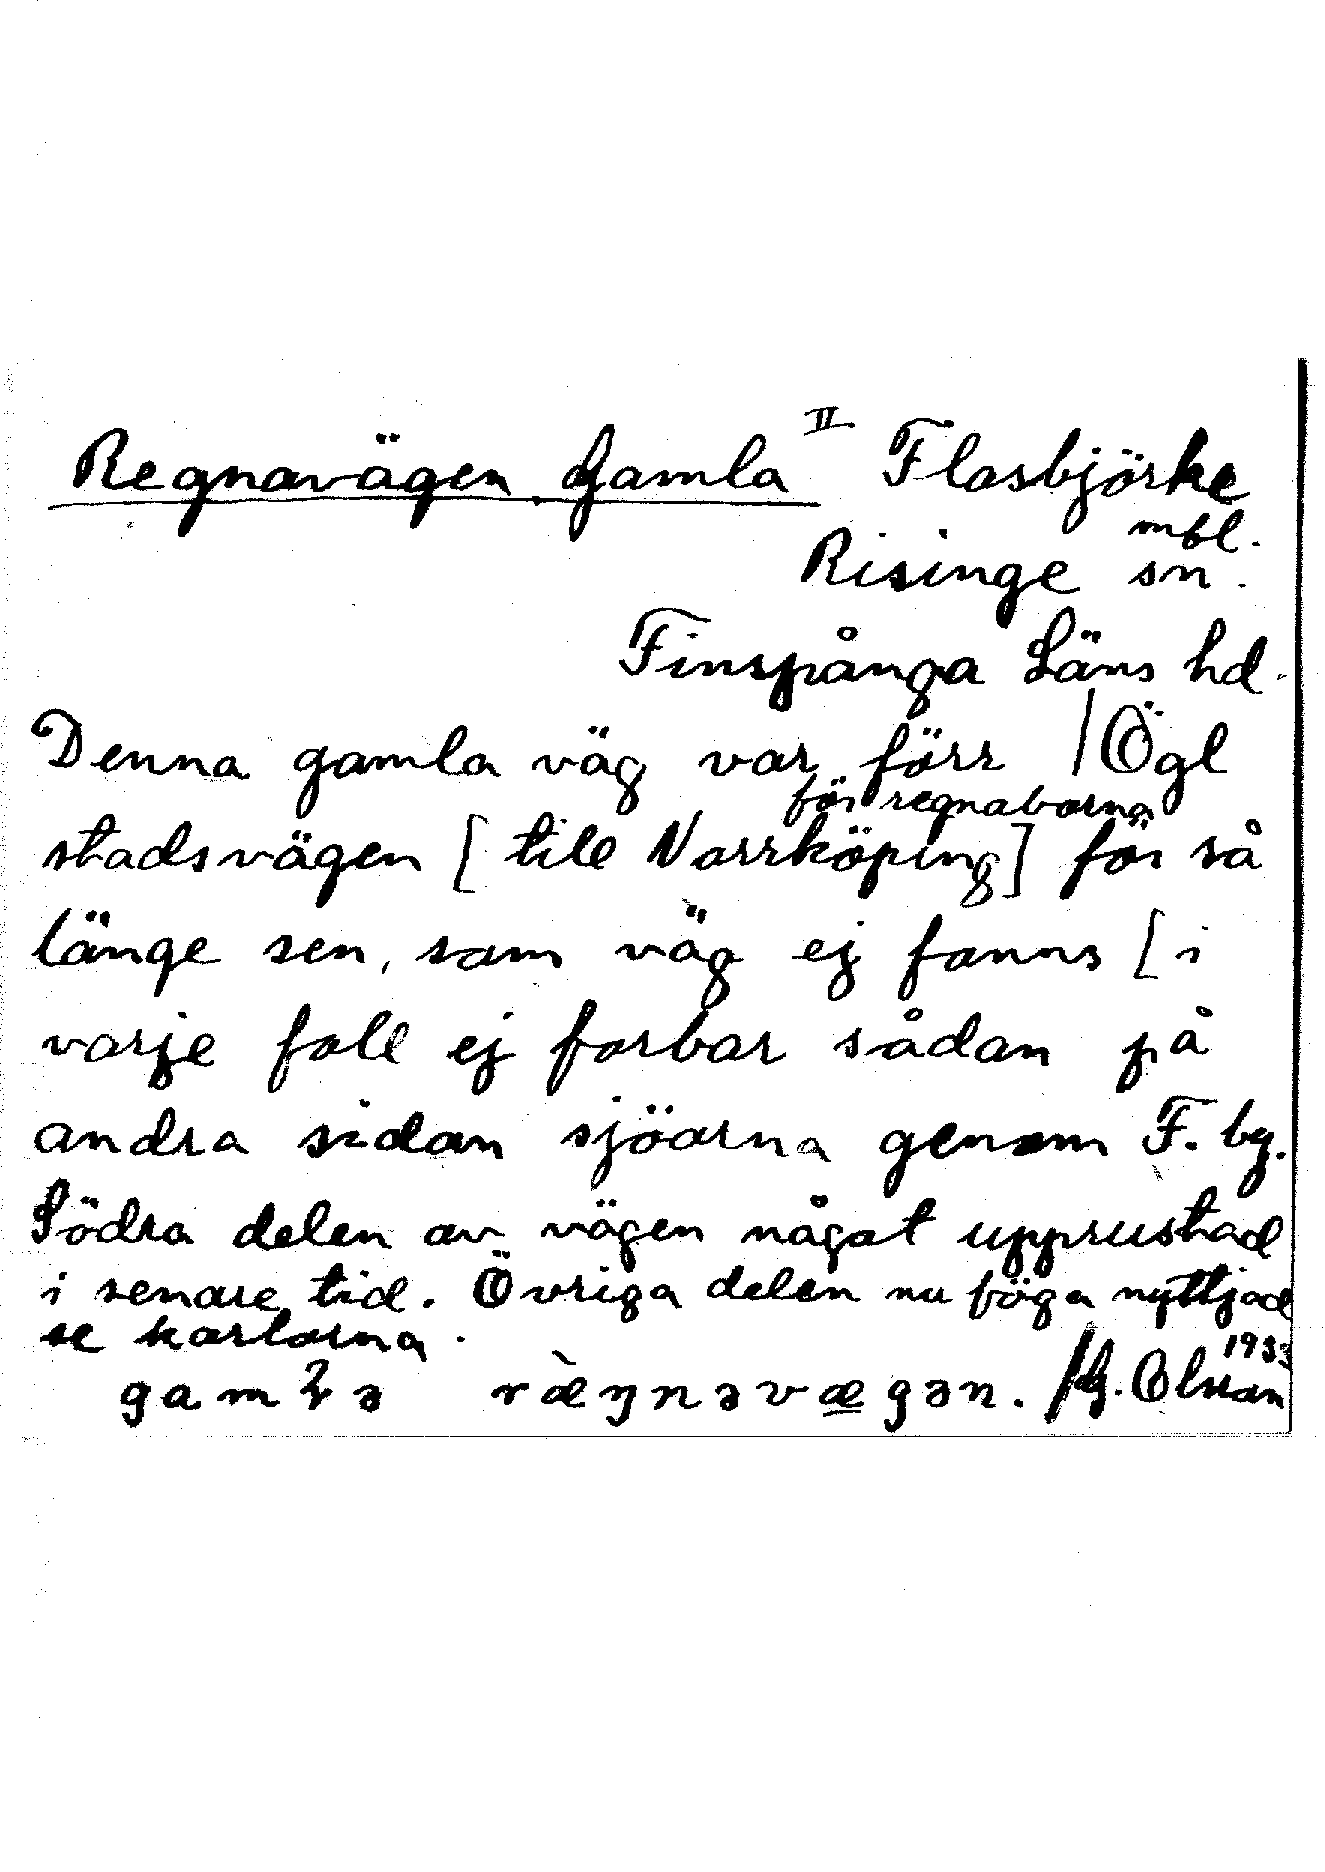 Regnavägen, Gamla II Flasbjörke
mbl.
Risinge sn.
Finspånga Läns hd.
Denna gamla väg var förr / Ögl
för regnaborna
stadsvägen [till Norrköping] för så
länge sen, som väg ej fanns [i
varje fall ej farbar sådan på
andra sidan sjöarna genom F. by.
Södra delen av vägen något upprustad
i senare tid. Övriga delen nu föga nyttjad
se kartorna.
1933
ræ̀ŋnəvægən. /G. Olsson